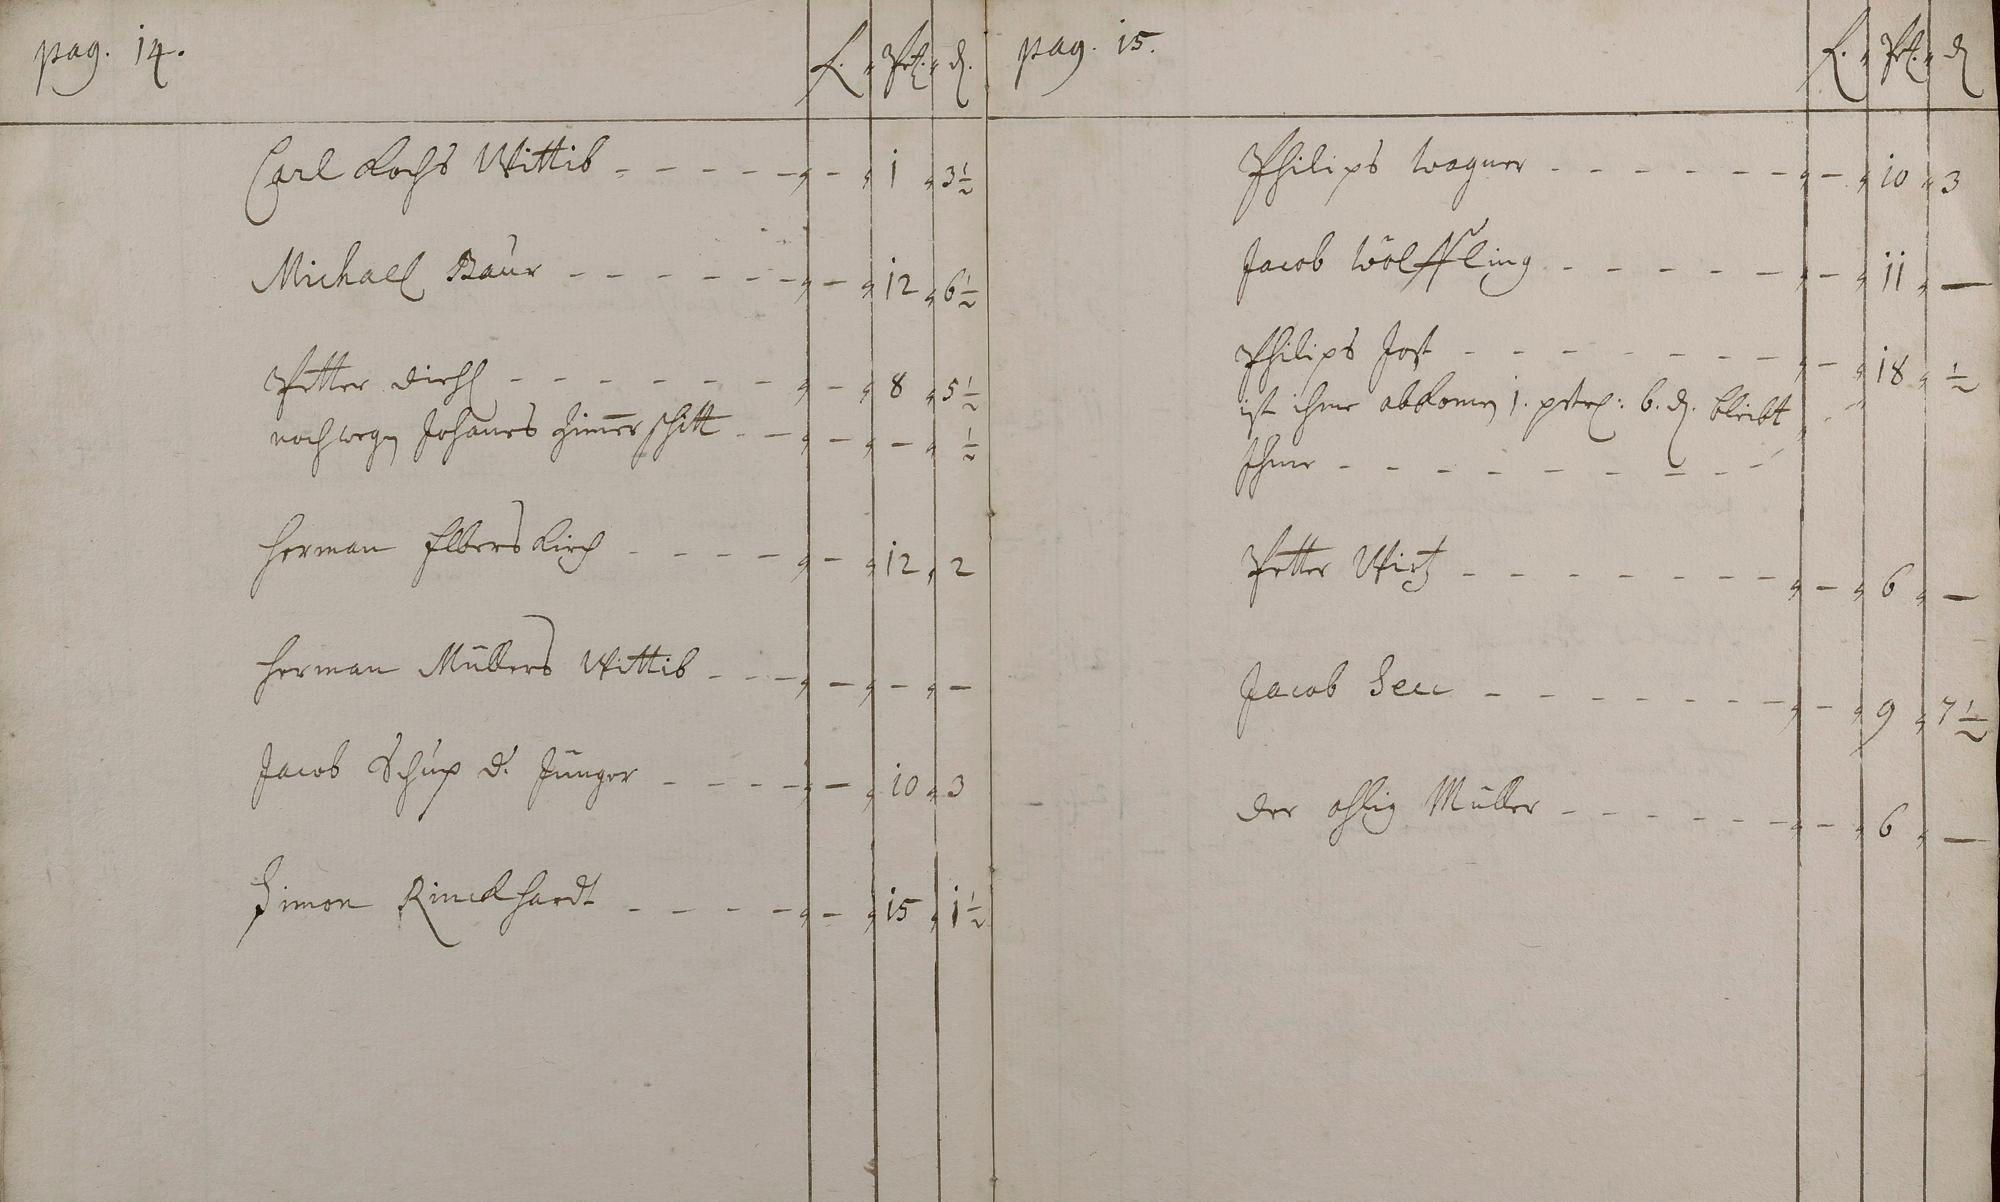 pag. 14. fl. " Pft. " d.
Carl Kochs Wittib - - - - - " - " 1 " 3½
Michael Baur - - - - - - " - " 12 " 6½
Petter Diehl - - - - - - - " - " 8 " 5½
noch wegen Johannes Zimmer schitt - - " - " - " ½
Herman Elbers Kirch - - - - " - " 12 " 2
Herman Müllers Wittib - - - " - " - " -
Jacob Schup d. Jünger - - - - " - " 10 " 3
Simon Rinckhardt - - - - " - " 15 " 1½
pag. 15. fl. " Pft. " d
Philips Wagner - - - - - - " - " 10 " 3
Jacob Wölffling - - - - - " - " 11 " -
Philips Jost - - - - - - - " - " 18 " ½
ist ihme abkomen 1. 6. d. bleibt
Ihme - - - - - - - - -
Petter Wirtz - - - - - - - " - " 6 " -
Jacob Seu - - - - - - - " - " 9 " 7½
Der ohlig Müller - - - - - - " - " 6 " -